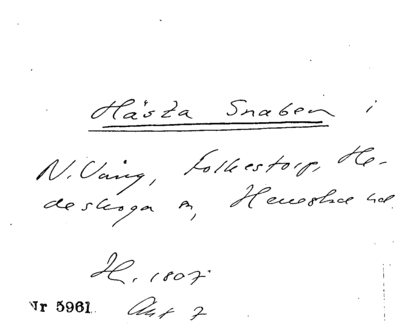 Hästa Snaben i
N. Vång, Folkestorp, He-
deskoga sn, Herrestads hd.
H. 1807
Nr 5961 Akt 7